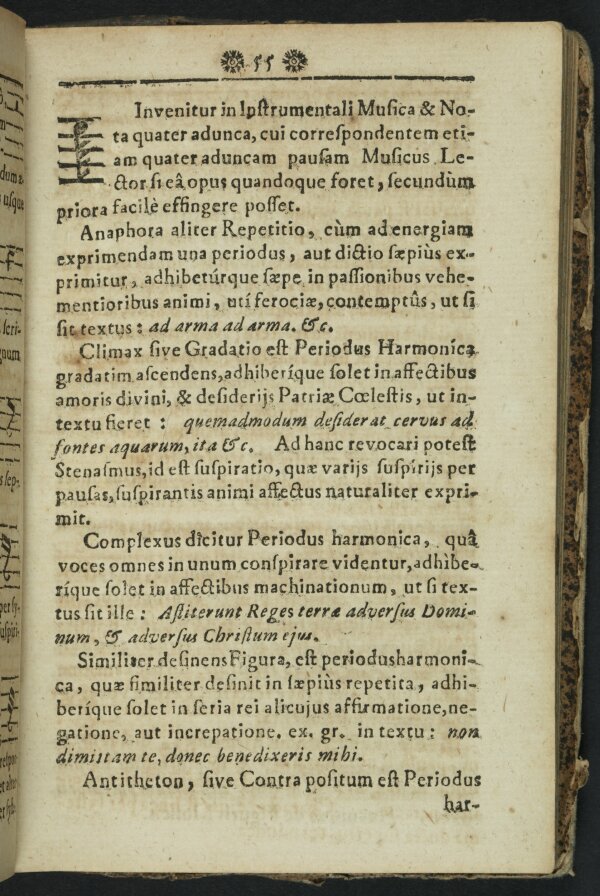 55
Invenitur in Inſtrumentali Muſica & No-
ta quater adunca, cui correſpondentem eti-
am quater aduncam pauſam Muſicus Le-
ctor ſi eâ opus quandoque foret, ſecundùm
priora facilè effingere poſſet.
Anaphora aliter Repetitio, cùm ad energiam
exprimendam una periodus, aut dictio ſæpiùs ex-
primitur, adhibetúrque ſæpe in paſſionibus vehe-
mentioribus animi, utì ferociæ, contemptûs, ut ſi
ſit textus: ad arma ad arma. &c.
Climax ſive Gradatio eſt Periodus Harmonica
gradatim aſcendens, adhiberíque ſolet in affectibus
amoris divini, & deſiderijs Patriæ Cœleſtis, ut in-
textu fieret: quemadmodum deſiderat cervus ad
fontes aquarum, ita &c. Ad hanc revocari poteſt
Stenaſmus, id eſt ſuſpiratio, quæ varijs ſuſpirijs per
pauſas, ſuſpirantis animi affectus naturaliter expri-
mit.
Complexus dicitur Periodus harmonica, quâ
voces omnes in unum conſpirare videntur, adhibe-
ríque ſolet in affectibus machinationum, ut ſi tex-
tus ſit ille: Aſtiterunt Reges terræ adverſus Domi-
num, & adverſus Chriſtum ejus.
Similiter deſinens Figura, eſt periodus harmoni-
ca, quæ ſimiliter deſinit in ſæpiùs repetita, adhi-
beríque ſolet in ſeria rei alicujus affirmatione, ne-
gatione, aut increpatione. ex. gr. in textu: non
dimittam te, donec benedixeris mihi.
Antitheton, ſive Contra poſitum eſt Periodus
har-